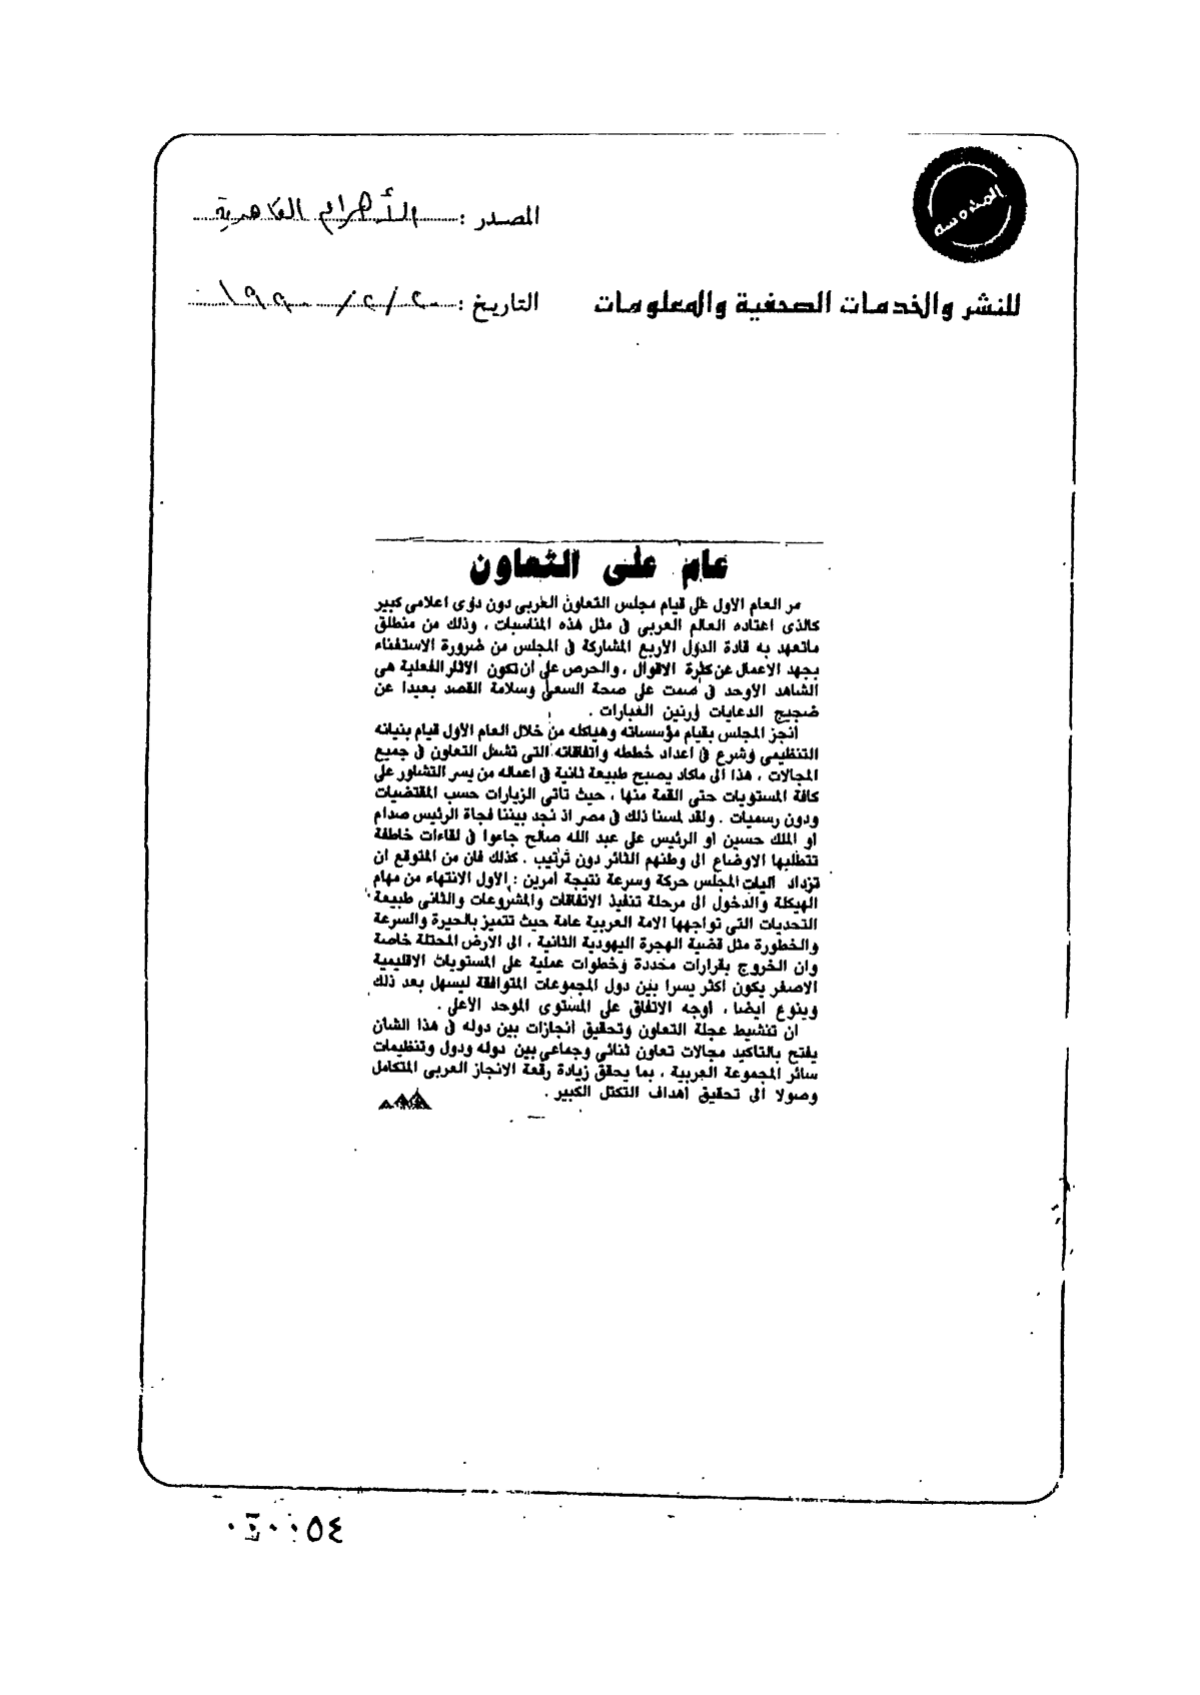 المصدر : الأهرام القاهرية
للنشر والخدمات الصحفية والمعلومات
التاريخ : ٢٠/٢/١٩٩٠
عام على التعاون
مر العام الاول على قيام مجلس التعاون العربى دون دوى اعلامى كبير
كالذى اعتاده العالم العربى فى مثل هذه المناسبات ، وذلك من منطلق
ماتعهد به قادة الدول الاربع المشاركة فى المجلس من ضرورة الاستغناء
بجهد الاعمال عن كثرة الاقوال ، والحرص على ان تكون الاثار الفعلية هى
الشاهد الاوحد فى صمت على صحة السعى وسلامة القصد بعيدا عن
ضجيج الدعايات ورنين العبارات .
أنجز المجلس بقيام مؤسساته وهياكله من خلال العام الاول قيام بنيانه
التنظيمى وشرع فى اعداد خططه واتفاقاته التى تشمل التعاون فى جميع
المجالات ، هذا الى ماكاد يصبح طبيعة ثانية فى اعماله من يسر التشاور على
كافة المستويات حتى القمة منها ، حيث تاتى الزيارات حسب المقتضيات
ودون رسميات . ولقد لمسنا ذلك فى مصر اذ نجد بيننا فجاة الرئيس صدام
او الملك حسين او الرئيس على عبد الله صالح جاءوا فى لقاءات خاطفة
تتطلبها الاوضاع الى وطنهم الثائر دون ترتيب . كذلك فان من المتوقع ان
تزداد اليات المجلس حركة وسرعة نتيجة أمرين : الاول الانتهاء من مهام
الهيكلة والدخول الى مرحلة تنفيذ الاتفاقات والمشروعات والثانى طبيعة
التحديات التى تواجهها الامة العربية عامة حيث تتميز بالحيرة والسرعة
والخطورة مثل قضية الهجرة اليهودية الثانية ، الى الارض المحتلة خاصة
وان الخروج بقرارات محددة وخطوات عملية على المستويات الاقليمية
الاصغر يكون اكثر يسرا بين دول المجموعات المتوافقة ليسهل بعد ذلك
وينوع ايضا ، اوجه الاتفاق على المستوى الموحد الاعلى .
ان تنشيط عجلة التعاون وتحقيق انجازات بين دوله فى هذا الشأن
يفتح بالتاكيد مجالات تعاون ثنائى وجماعى بين دوله ودول وتنظيمات
سائر المجموعة العربية ، بما يحقق زيادة رقعة الانجاز العربى المتكامل
وصولا الى تحقيق أهداف التكتل الكبير .